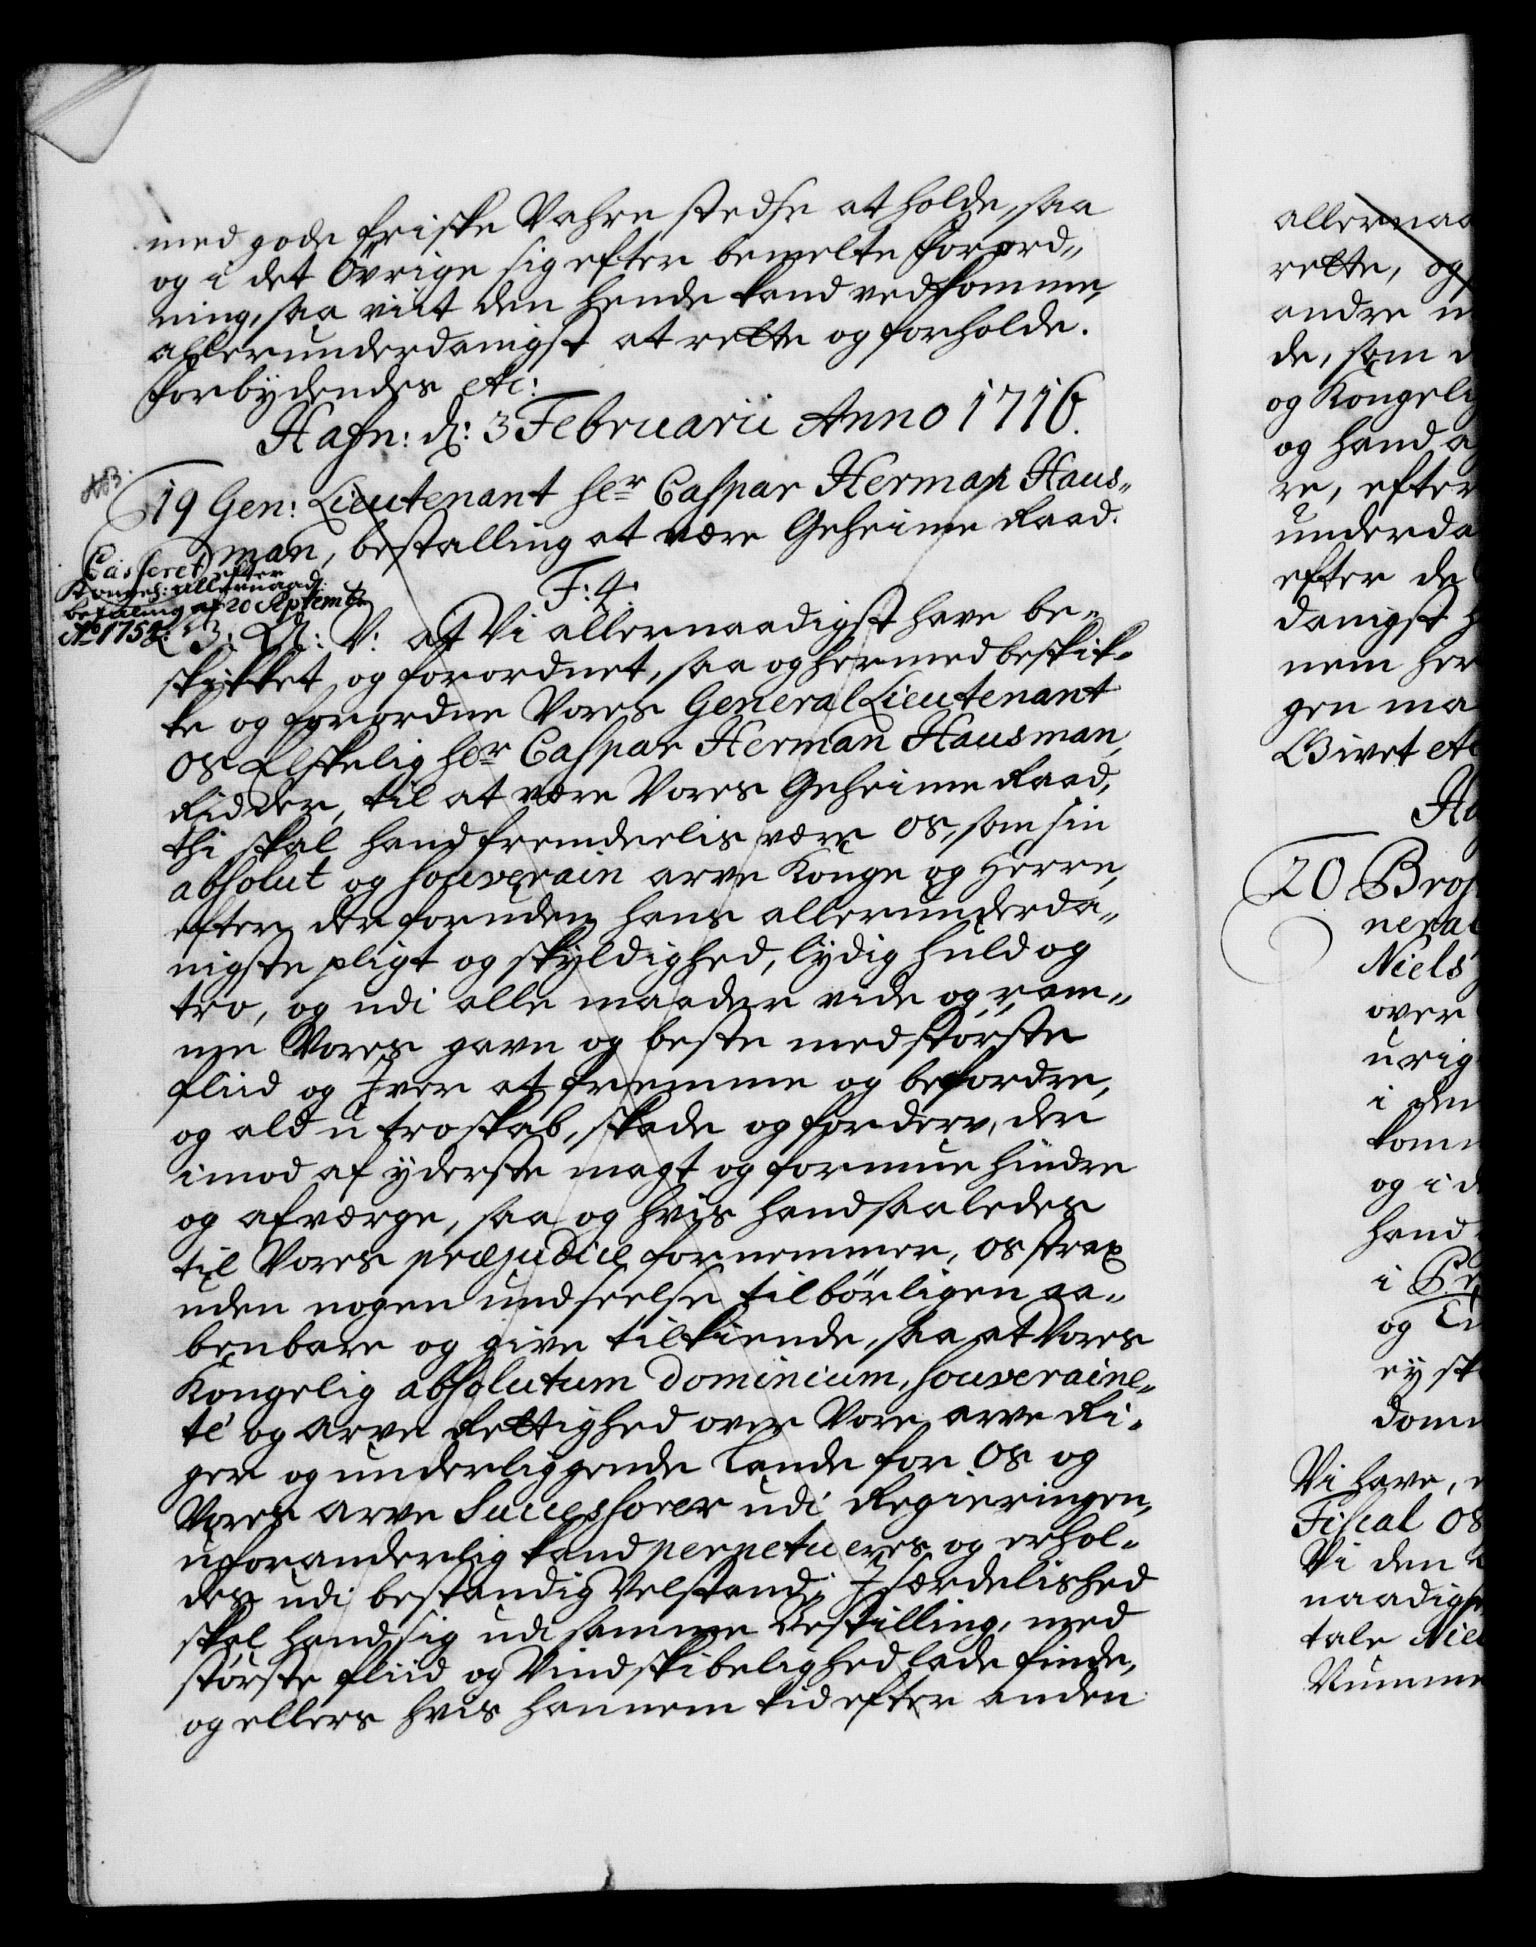 med gode friske Vahre stedse at holde, saa
og i det Övrige sig efter bemelte Forord„
ning, saa vit den hende kand vedkomme,
allerunderdanigst at rette og forholde.
Forbydendes etc:
Hafn: d: 3 Februarii Anno 1716.
NB.
19 Gen: Lieutenant her Caspar Herman Haus„
man, bestalling at være Geheime Raad.
Casseret efter
Konges: allernaad:
befaling af 20 Septembr
Ao 1754.
F: 4.
G: A: V: at Vi allernaadigst have be„
skikket og forordnet, saa og hermed beskik„
ke og forordne Vores General Lieutenant
os Elskelig her Caspar Herman Hausman,
Ridder, til at være Vores Geheime Raad,
thi skal hand fremdeelis være os, som sin
absolut og souverain arve Konge og Herre,
efter der foruden hans allerunderda„
nigste pligt og skyldighed, lydig huld og
tro, og udi alle maader vide og ram„
me Vores gavn og beste med störste
fliid og Iver at fremme og befordre,
og ald utroskab, skade og forderv, der
imod af yderste magt og formue hindre
og afværge, saa og hvis hand saaledes
til Vores præjudice fornemmer, os strax
uden nogen undseelse tilbörligen aa„
benbare og give tilkiende, saa at Vores
Kongelig absolutum dominium, souveraine„
té og arve Rettighed over Vore arve Ri„
ger og underliggende Lande for os og
Vores arve Successorer udi Regieringen,
uforanderlig kand perpetueres og erhol„
des udi bestandig Velstand; Isærdelished
skal hand sig udi samme Bestilling, med
störste fliid og Vindskibelighed lade finde,
og ellers hvis hannem tid efter anden
allernaa
rette, og
andre
de, som
og Kongelig
og hand
re, efter
underda
efter de
danigst
nem her
gen ma
Givet etc
20
Niels
over
i den
og i d
hand
i
og
ey
Vi have,
Fiscal os
Vi den
naadigst
tale Niel